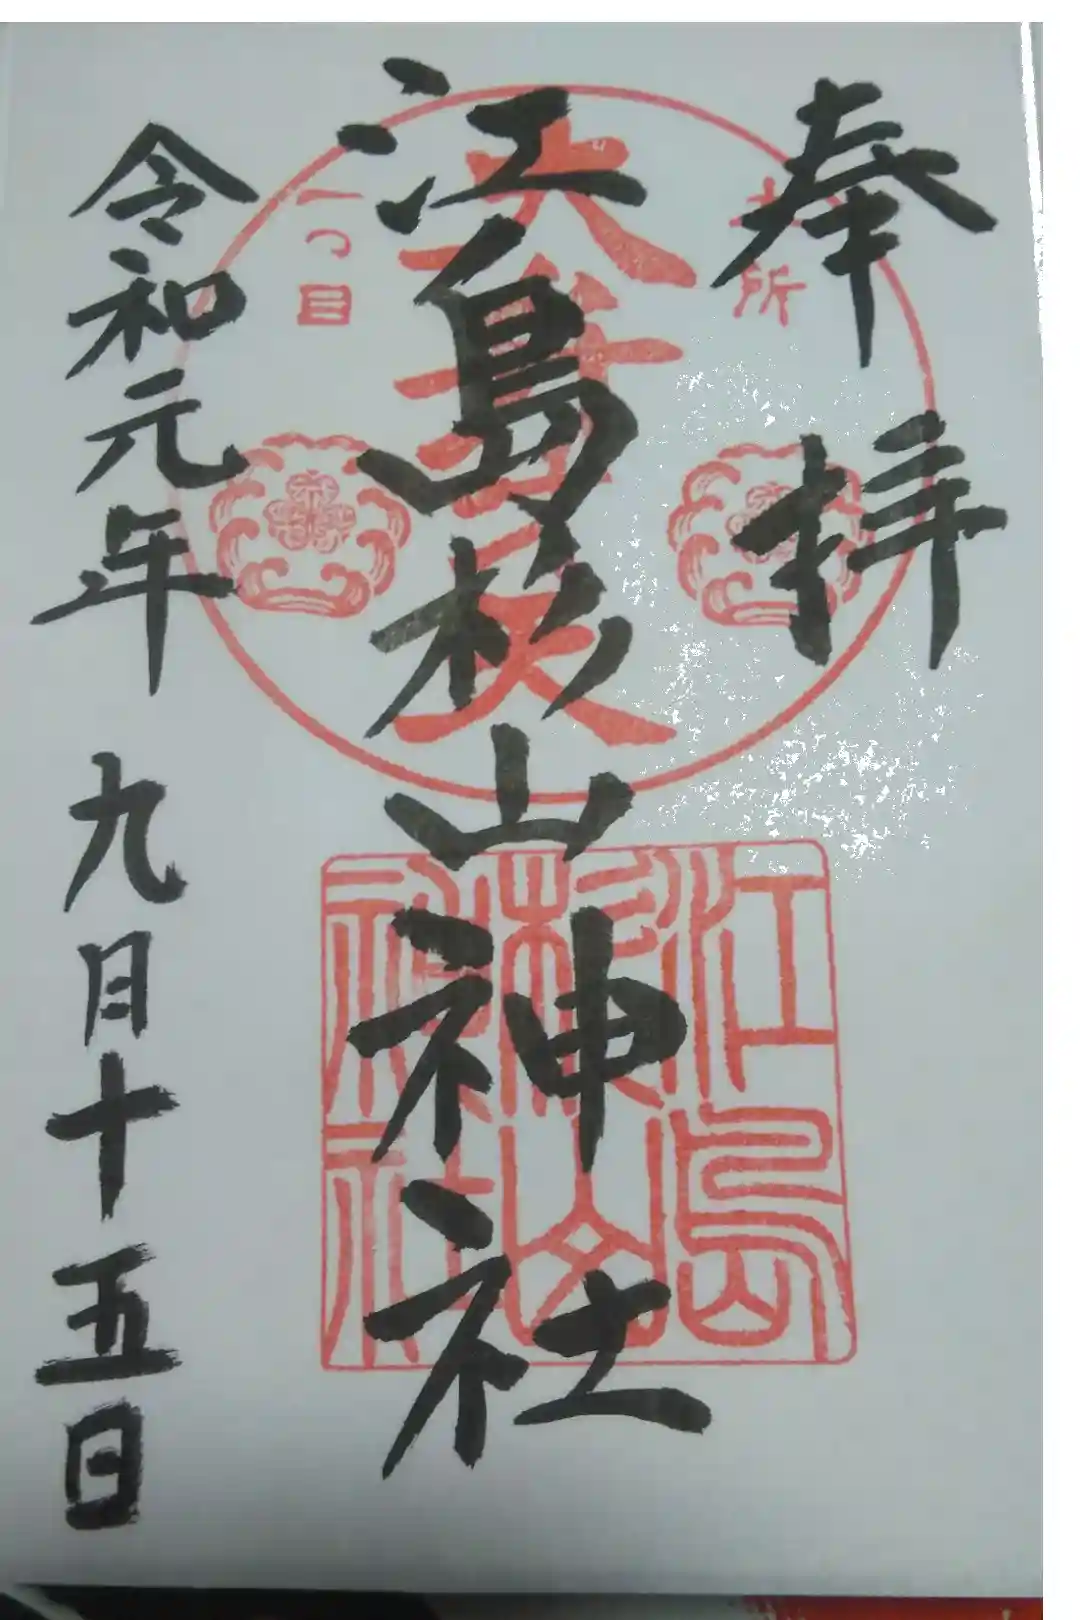 奉拝
本所
江島杉山神社
大弁天
一つ目
江島
杉山
神社
令和元年 九月十五日